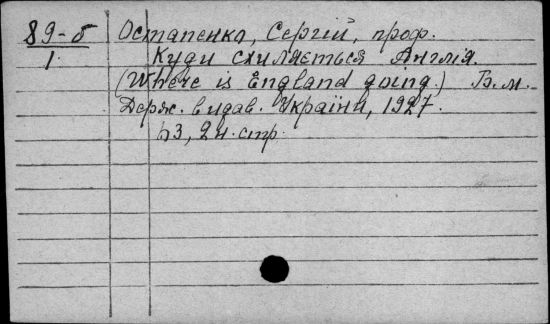 89-б Остапенко, Сергій, проф.
1. Куди схиляється Англія.
(Where is England going.) Б.м.
Держ. видав. України, 1927.
63, 2н. стр.